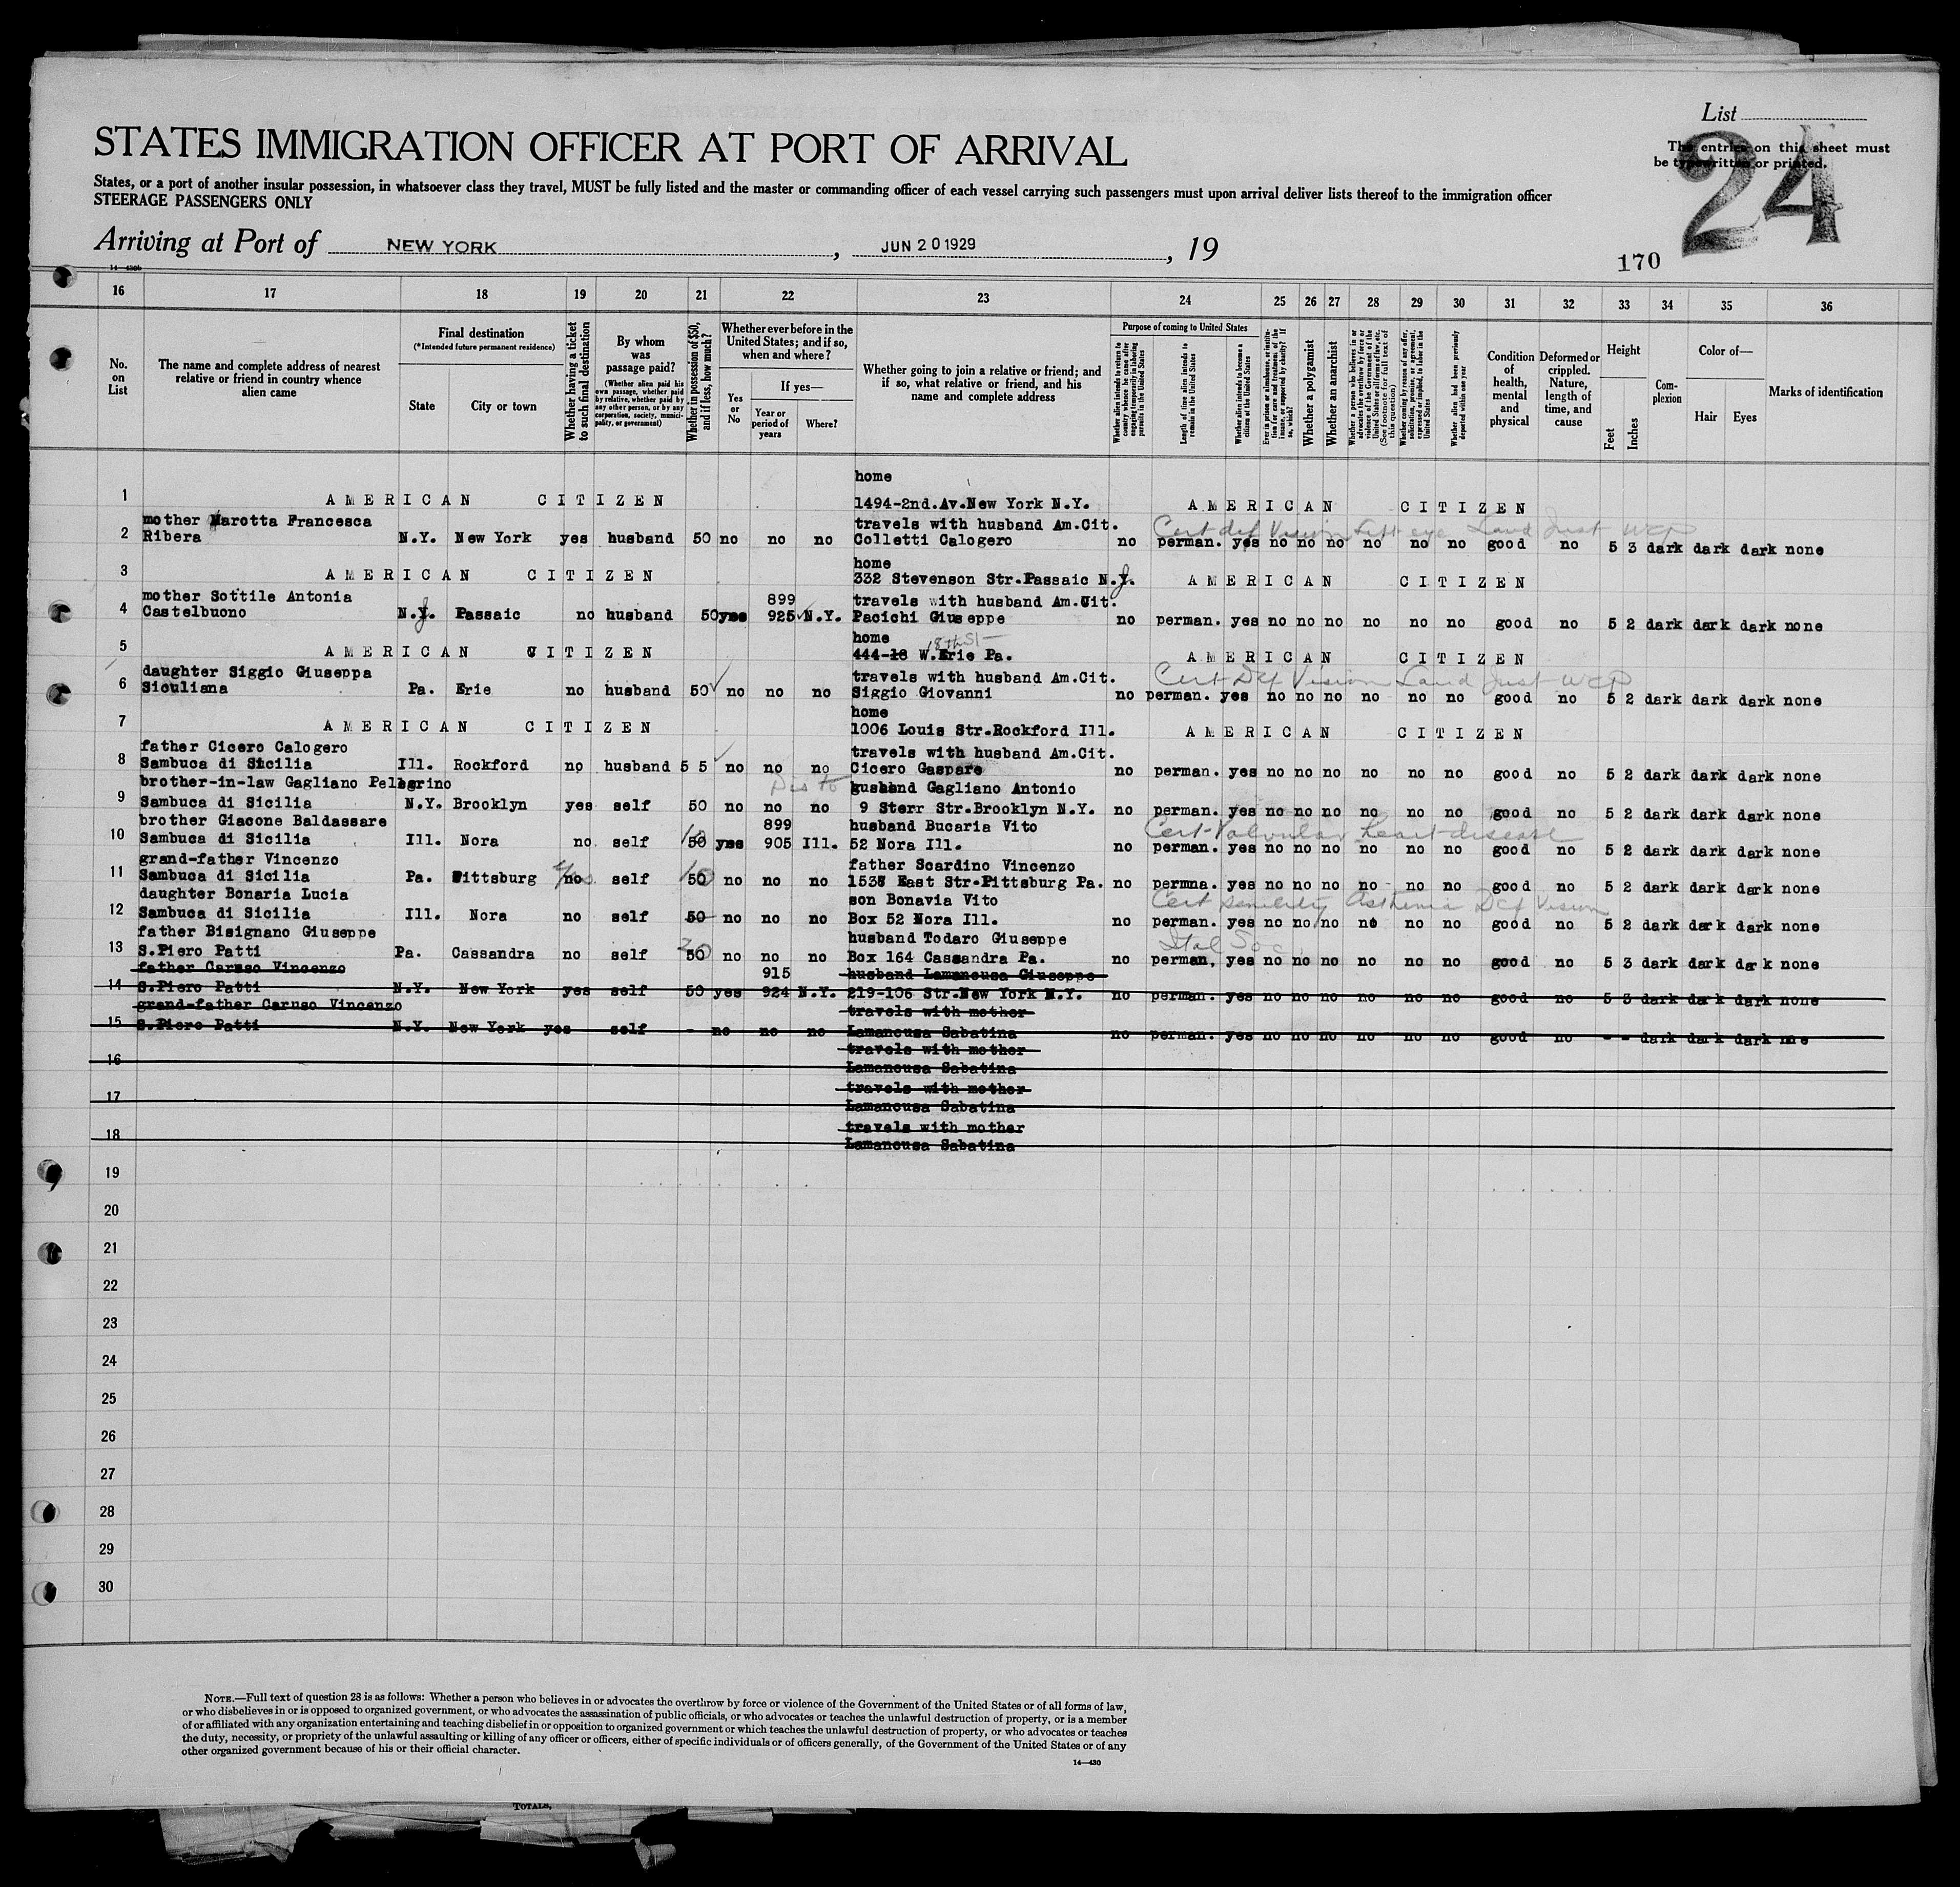 List
The entries on this sheet must
be typewritten or printed.
24
STATES IMMIGRATION OFFICER AT PORT OF ARRIVAL
States, or a port of another insular possession, in whatsoever class they travel, MUST be fully listed and the master or commanding officer of each vessel carrying such passengers must upon arrival deliver lists thereof to the immigration officer
STEERAGE PASSENGERS ONLY
Arriving at Port of NEW YORK, JUN 20 1929, 19
170
16 17 18 19 20 21 22 23 24 25 26 27 28 29 30 31 32 33 34 35 36
No. on List
The name and complete address of nearest relative or friend in country whence alien came
Final destination
(*Intended future permanent residence)
State
City or town
Whether having a ticket to such final destination
By whom was passage paid?
(Whether alien paid his own passage, whether paid by relative, whether paid by any other person, or by any corporation, society, municipality, or government)
Whether in possession of $50, and if less, how much?
Whether ever before in the United States; and if so, when and where?
Yes or No
If yes—
Year or period of years
Where?
Whether going to join a relative or friend; and if so, what relative or friend, and his name and complete address
Purpose of coming to United States
Whether alien intends to return to country whence he came after engaging temporarily in laboring pursuits in the United States
Length of time alien intends to remain in the United States
Whether alien intends to become a citizen of the United States
Ever in prison or almshouse, or institution for care and treatment of the insane, or supported by charity? If so, which?
Whether a polygamist
Whether an anarchist
Whether a person who believes in or advocates the overthrow by force or violence of the Government of the United States or all forms of law, etc. (See footnote for full text of this question)
Whether coming by reason of any offer, solicitation, promise, or agreement, expressed or implied, to labor in the United States
Whether alien had been previously deported within one year
Condition of health, mental and physical
Deformed or crippled. Nature, length of time, and cause
Height
Feet
Inches
Complexion
Color of—
Hair
Eyes
Marks of identification
home
1 AMERICAN CITIZEN 1494-2nd.Av.New York N.Y. AMERICAN CITIZEN
mother Marotta Francesca travels with husband Am.Cit. Cert def Vision Left eye Land Just WCP
2 Ribera N.Y. New York yes husband 50 no no no Colletti Calogero no perman. yes no no no no no no good no 5 3 dark dark dark none
home
3 AMERICAN CITIZEN 332 Stevenson Str.Passaic N.J. AMERICAN CITIZEN
mother Sottile Antonia 899 travels with husband Am.Cit.
4 Castelbuono N.J. Passaic no husband 50 yes 925 N.Y. Pacichi Giuseppe no perman. yes no no no no no no good no 5 2 dark dark dark none
home 18th St
5 AMERICAN CITIZEN 444-18 W.Erie Pa. AMERICAN CITIZEN
daughter Siggio Giuseppa travels with husband Am.Cit. Cert Def Vision Land Just WCP
6 Siculiana Pa. Erie no husband 50 no no no Siggio Giovanni no perman. yes no no no no no no good no 5 2 dark dark dark none
home
7 AMERICAN CITIZEN 1006 Louis Str.Rockford Ill. AMERICAN CITIZEN
father Cicero Calogero travels with husband Am.Cit.
8 Sambuca di Sicilia Ill. Rockford no husband 5 5 no no no Cicero Gaspare no perman. yes no no no no no no good no 5 2 dark dark dark none
brother-in-law Gagliano Pellegrino husband Gagliano Antonio
9 Sambuca di Sicilia N.Y. Brooklyn yes self 50 no no no 9 Sterr Str.Brooklyn N.Y. no perman. yes no no no no no no good no 5 2 dark dark dark none
brother Giacone Baldassare 899 husband Bucaria Vito Cert Valvular heart disease
10 Sambuca di Sicilia Ill. Nora no self 50 yes 905 Ill. 52 Nora Ill. no perman. yes no no no no no no good no 5 2 dark dark dark none
grand-father Vincenzo father Scardino Vincenzo
11 Sambuca di Sicilia Pa. Pittsburg no self 50 no no no East Str.Pittsburg Pa. no permna. yes no no no no no no good no 5 2 dark dark dark none
daughter Bonaria Lucia son Bonavia Vito Cert Senility Asthenia Def Vision
12 Sambuca di Sicilia Ill. Nora no self 50 no no no Box 52 Nora Ill. no perman. yes no no no no no no good no 5 2 dark dark dark none
father Bisignano Giuseppe husband Todaro Giuseppe Ital Soc
13 S.Piero Patti Pa. Cassandra no self 50 no no no Box 164 Cassandra Pa. no perman, yes no no no no no no good no 5 3 dark dark dark none
father Caruso Vincenzo 915 husband Lamancusa Giuseppe
14 S.Piero Patti N.Y. New York yes self 50 yes 924 N.Y. 219-106 Str.New York N.Y. no perman. yes no no no no no no good no 5 3 dark dark dark none
grand-father Caruso Vincenzo travels with mother
15 S.Piero Patti N.Y. New York yes self - no no no Lamancusa Sabatina no perman. yes no no no no no no good no - - dark dark dark
travels with mother
16 Lamancusa Sabatina
travels with mother
17 Lamancusa Sabatina
travels with mother
18 Lamancusa Sabatina
19
20
21
22
23
24
25
26
27
28
29
30
NOTE.—Full text of question 28 is as follows: Whether a person who believes in or advocates the overthrow by force or violence of the Government of the United States or of all forms of law,
or who disbelieves in or is opposed to organized government, or who advocates the assassination of public officials, or who advocates or teaches the unlawful destruction of property, or is a member
of or affiliated with any organization entertaining and teaching disbelief in or opposition to organized government or which teaches the unlawful destruction of property, or who advocates or teaches
the duty, necessity, or propriety of the unlawful assaulting or killing of any officer or officers, either of specific individuals or of officers generally, of the Government of the United States or of any
other organized government because of his or their official character.
14—430
TOTALS,